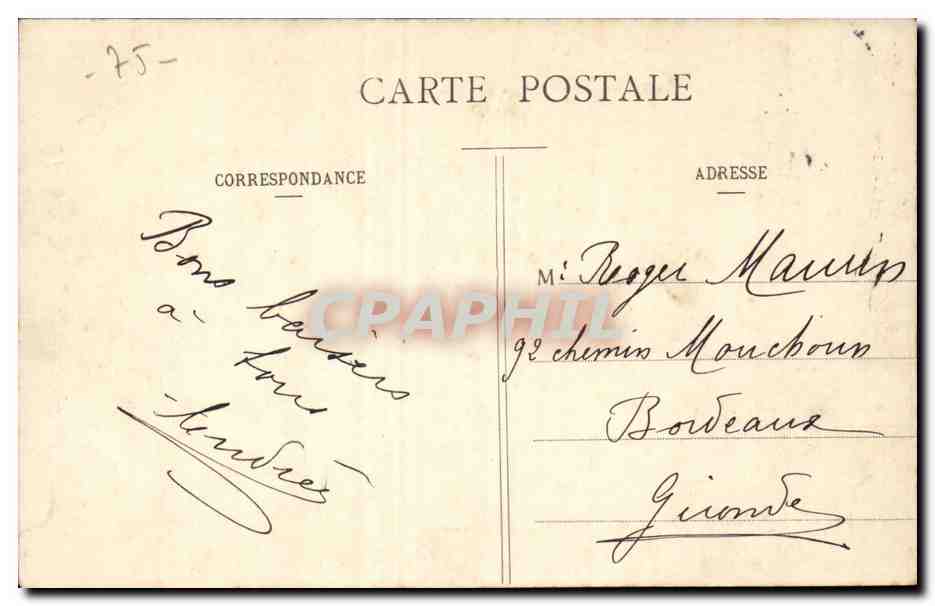 - 75 -
CARTE POSTALE
CORRESPONDANCE
Bons baisers
à tous
Andrée
ADRESSE
Mr Roger Maurin
92 chemin Mouchoun
Bordeaux
Gironde
CPAPHIL